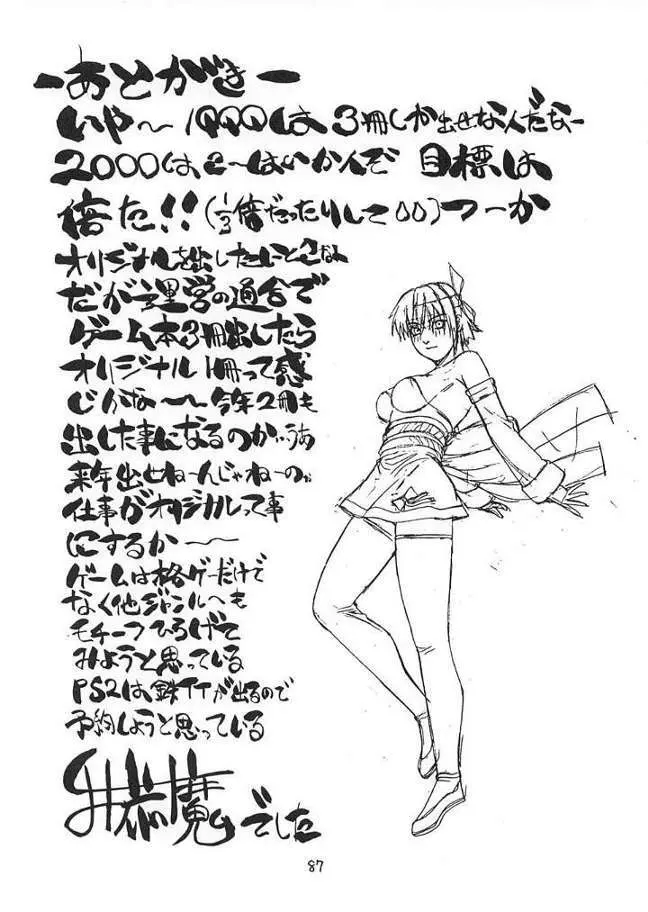 ーあとがきー
いや〜1999は3冊しか出せなんだなー
2000は2〜はいかんぞ 目標は
倍だ!!(1/3倍だったりして00)つーか
オリジナルを出したいとこなん
だが運営の都合で
ゲーム本3冊出したら
オリジナル1冊って感
じかな〜今年2冊も
出した事になるのか…うあ
来年出せねーんじゃねーの
仕事がオリジナルって事
にするかー
ゲームは格ゲーだけで
なく他ジャンルへも
モチーフひろげて
みようと思っている
PS2は鉄TTが出るので
予約しようと思っている
魔 でした
87